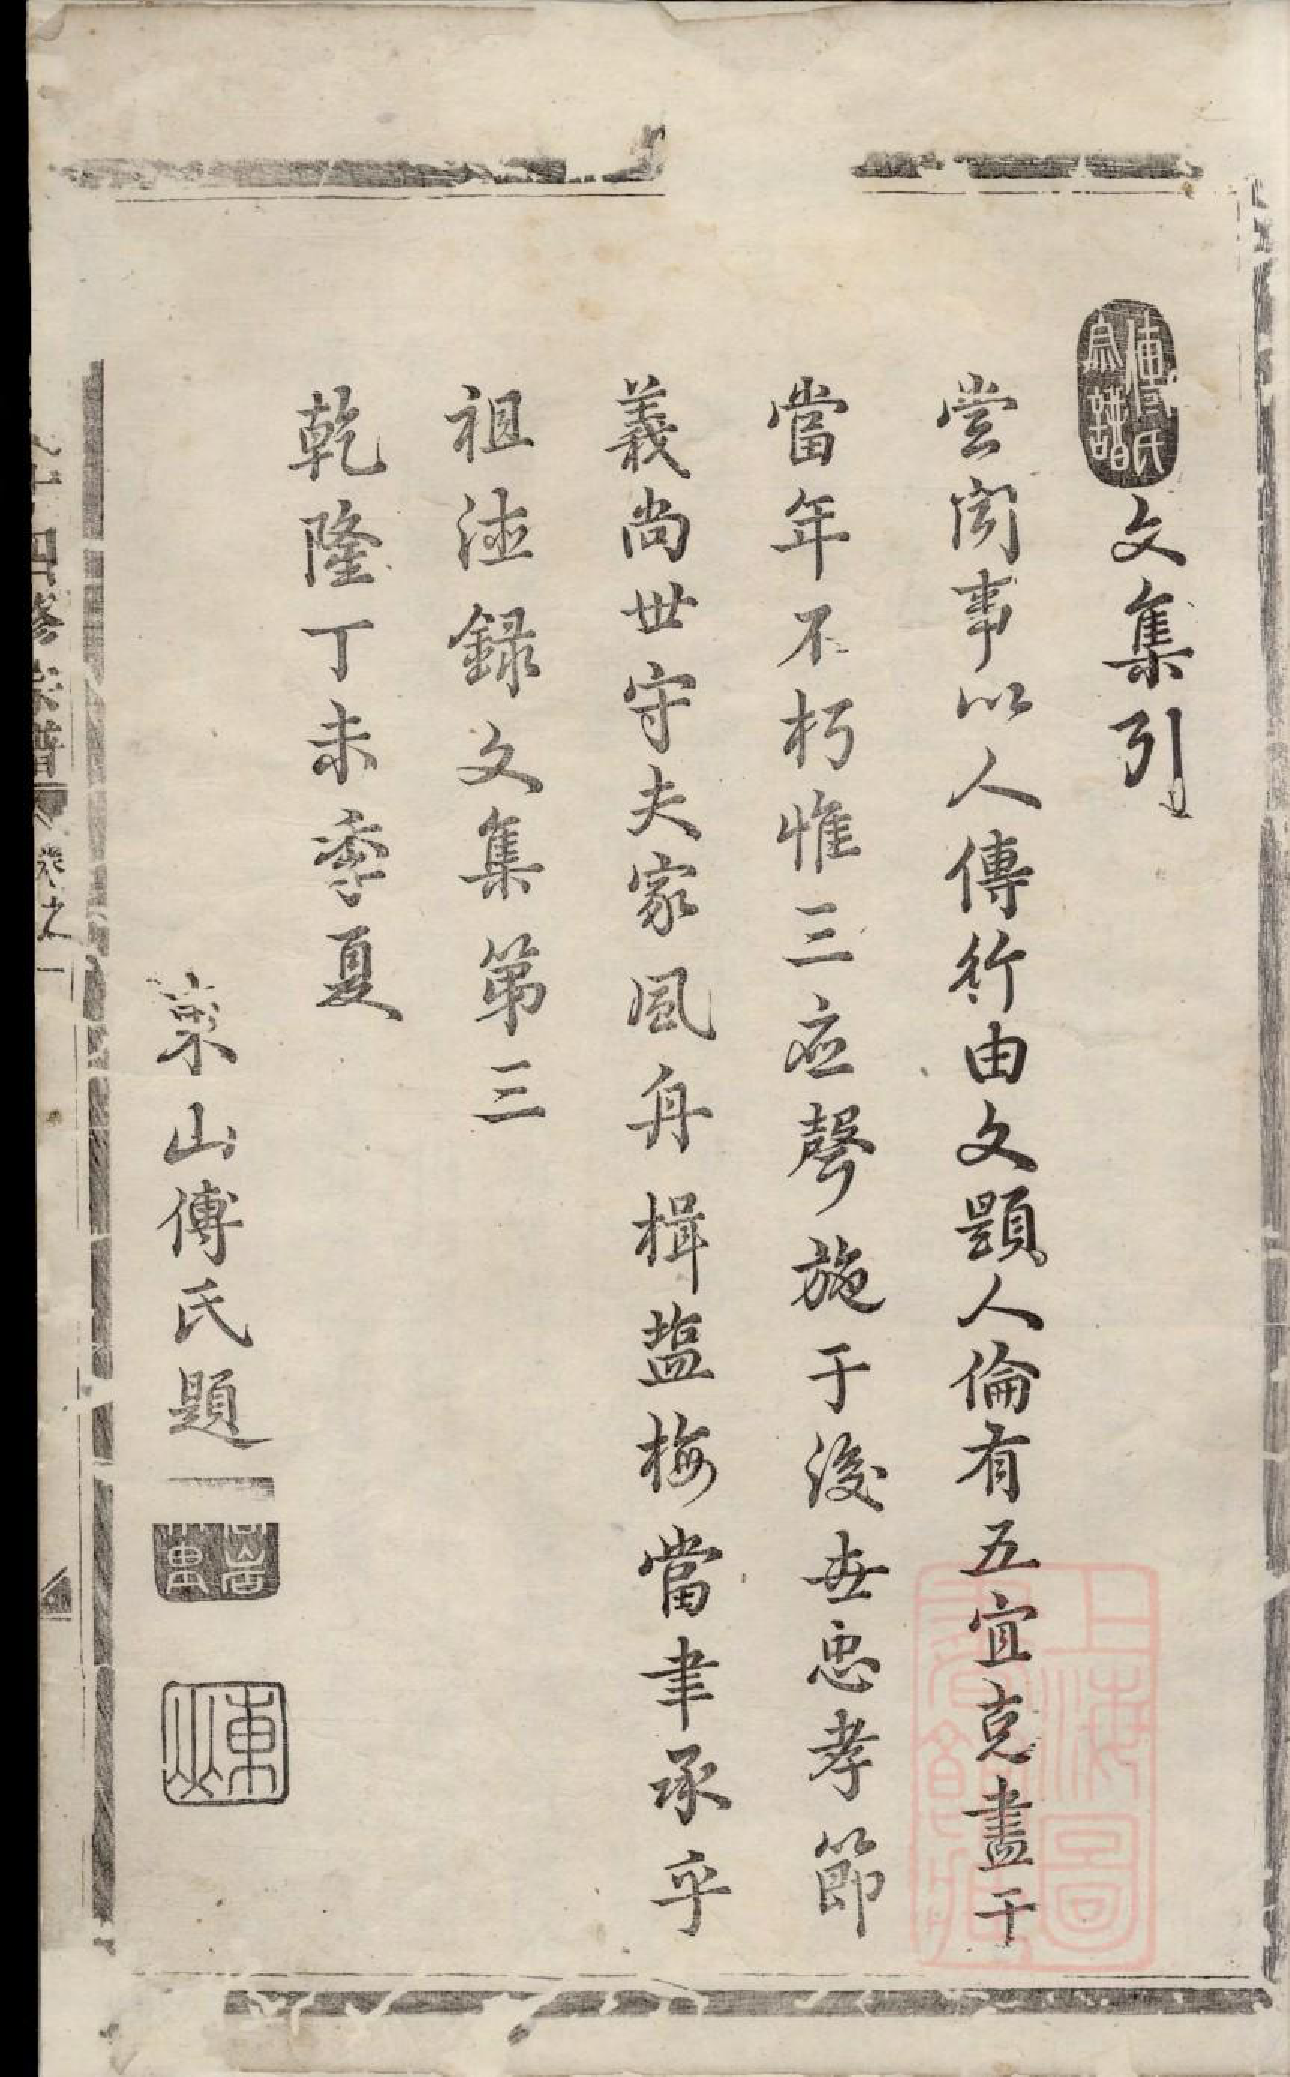 傅氏宗譜
文集引
嘗聞事以人傳行由文顕人倫有五宜克盡于
當年不朽惟三应聲施于後世忠孝節
義尚世守夫家風舟楫塩梅當聿承乎
祖法録文集第三
乾隆丁未季夏
東山傅氏題
上海圖書館藏
四修宗譜
卷之一